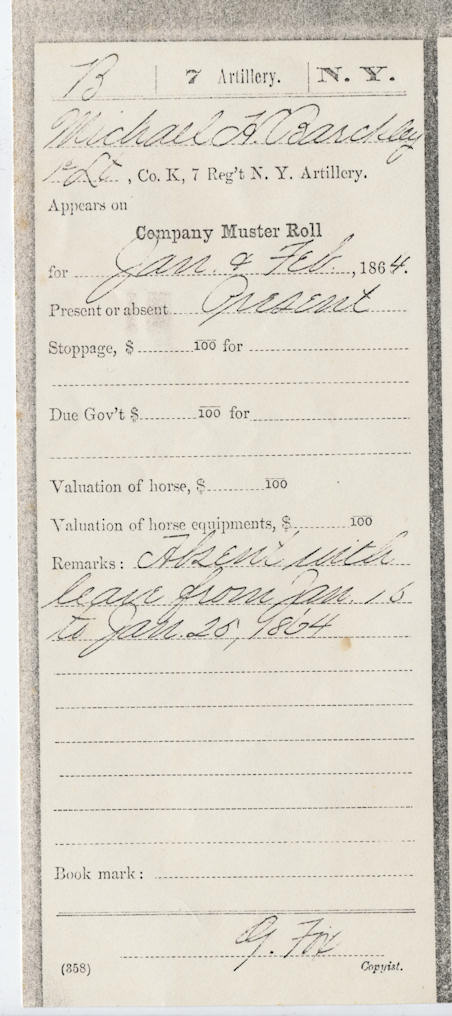 B | 7 Artillery. | N. Y.
Michael H. Barckley
1st Lt, Co. K, 7 Reg't N. Y. Artillery.
Appears on
Company Muster Roll
for Jan. & Feb., 1864.
Present or absent Present
Stoppage, $ 100 for
Due Gov't $ 100 for
Valuation of horse, $ 100
Valuation of horse equipments, $ 100
Remarks: Absent with
leave from Jan. 16
to Jan. 25, 1864
Book mark:
G. Fox
(358) Copyist.